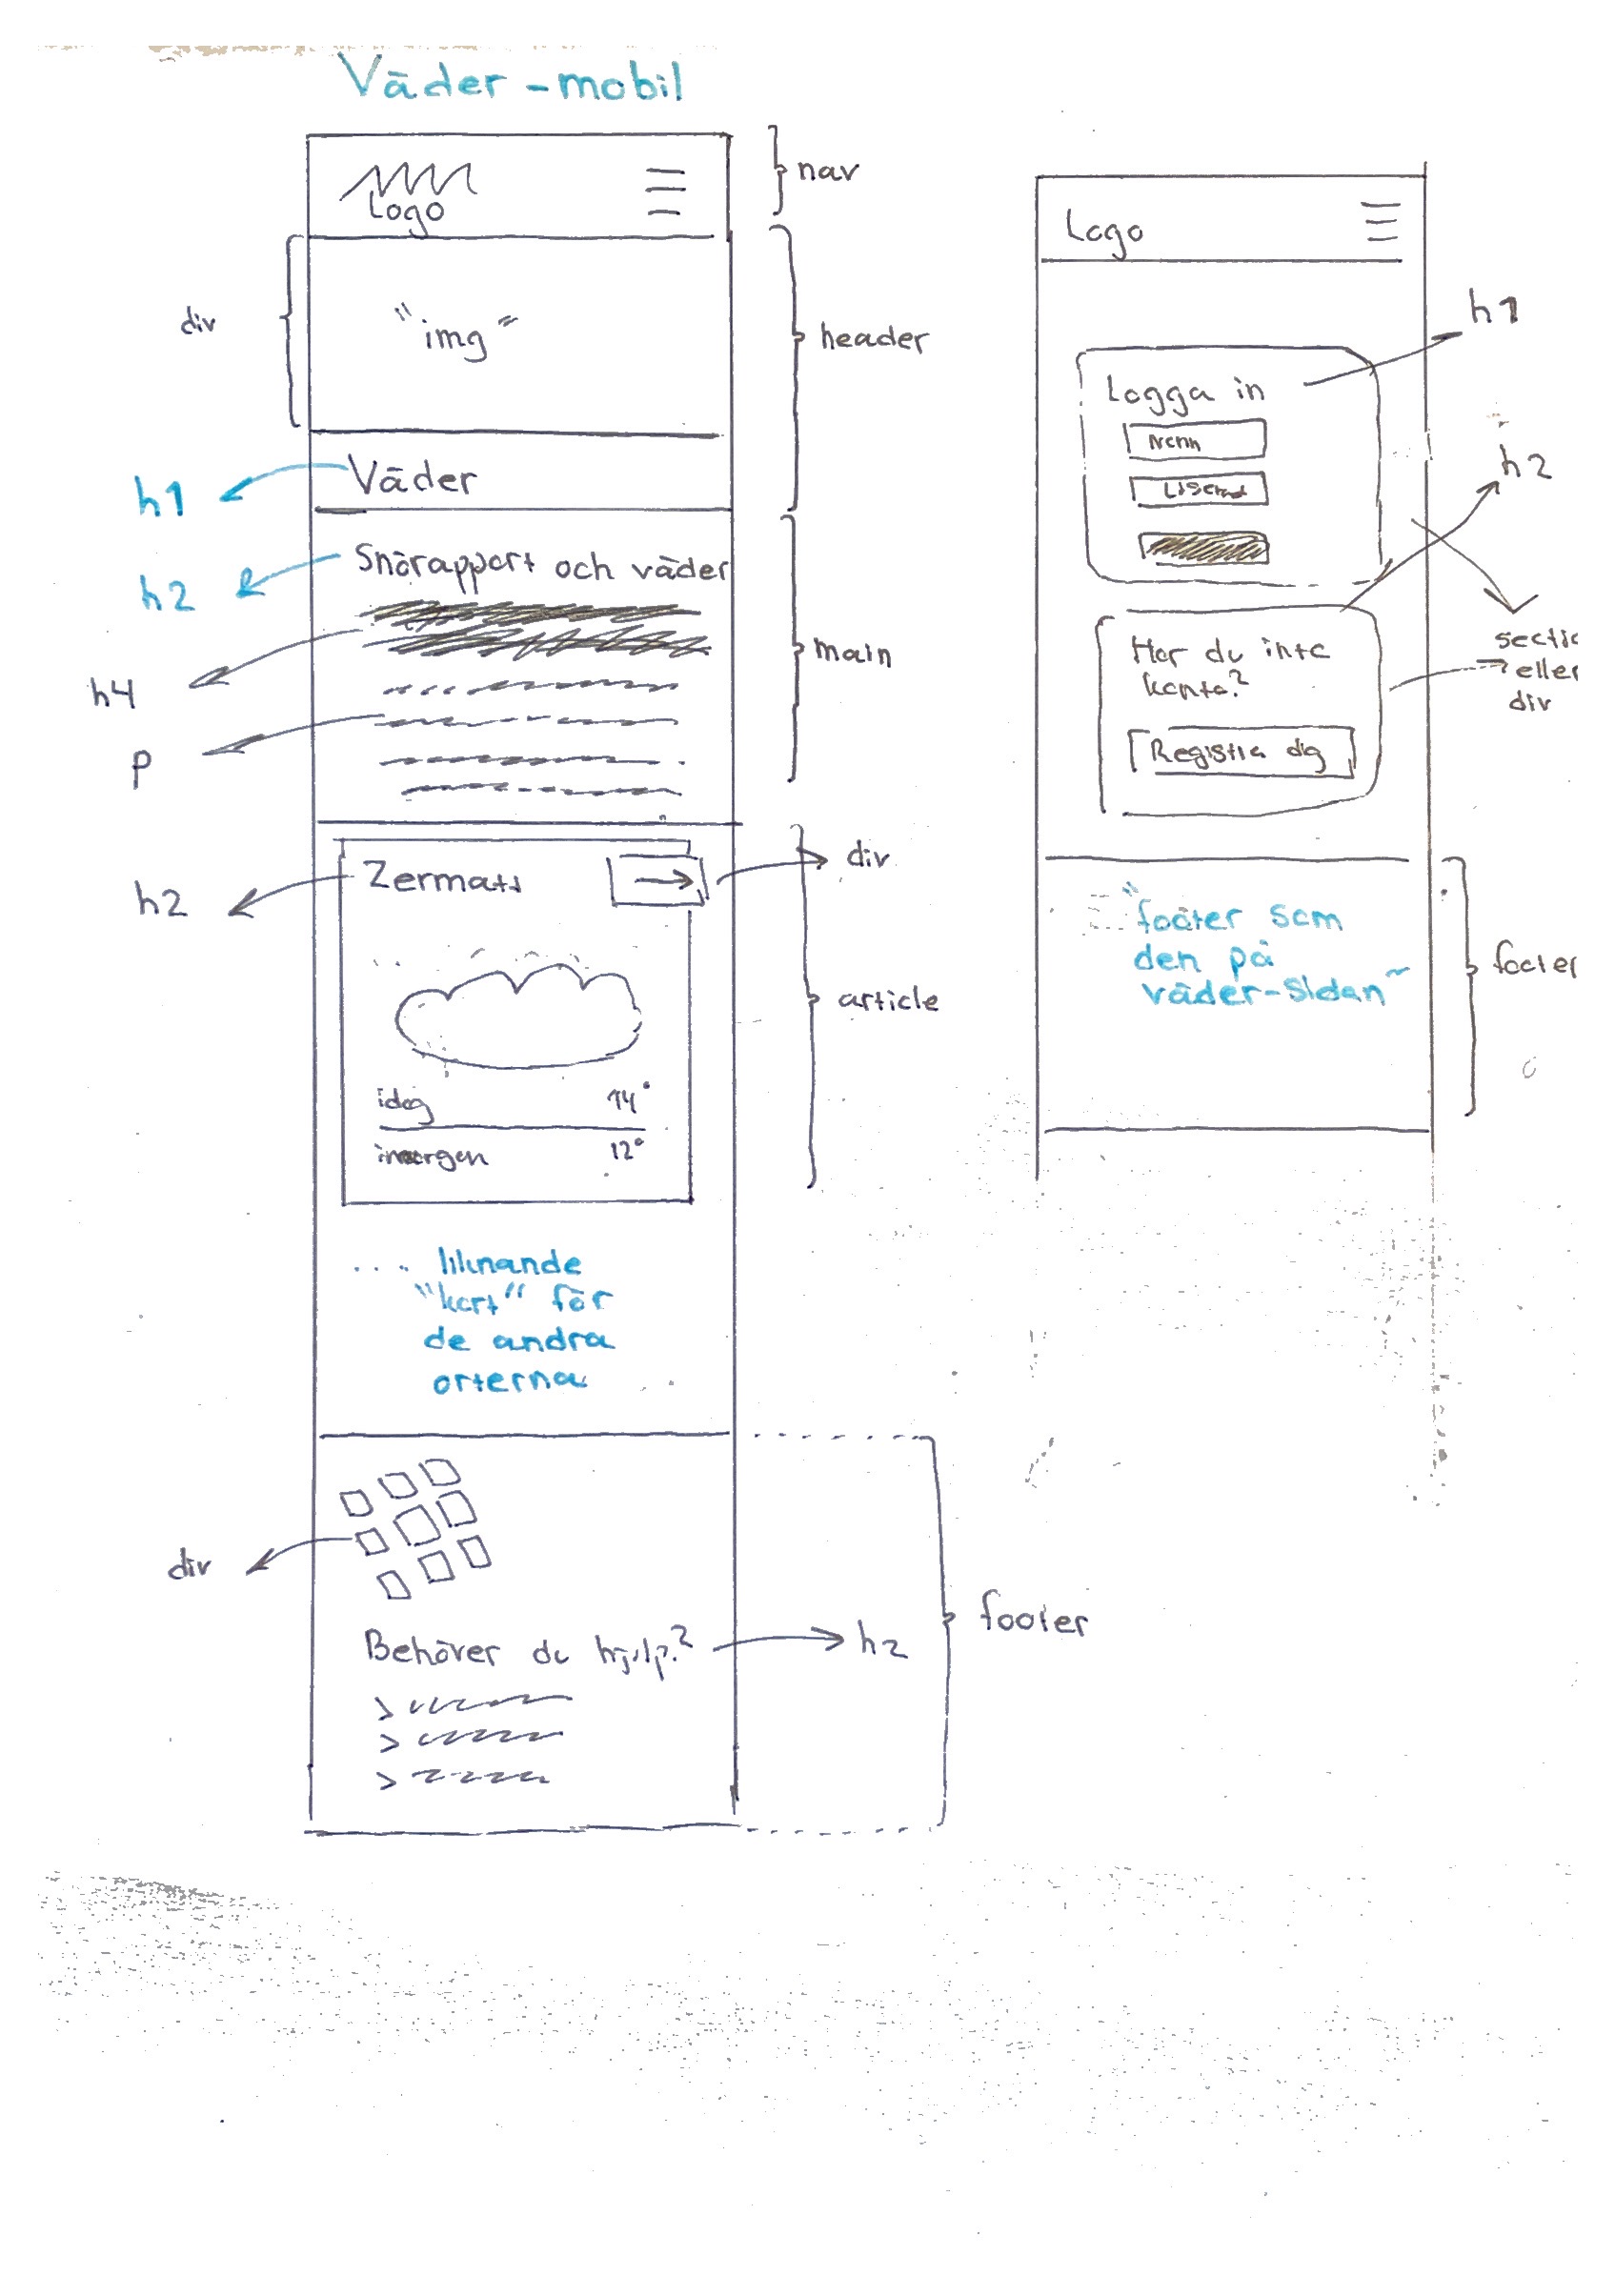 Väder - mobil
Logo
nav
div
"img"
header
h1
Väder
h2
Snörapport och väder
h4
main
p
h2
Zermatt
div
article
idag 14°
imorgon 12°
. . . liknande
"kort" för
de andra
orterna
div
Behöver du hjälp?
h2
footer
Logo
h1
Logga in
Namn
h2
Har du inte
konto?
eller
div
Registra dig
"footer som
den på
väder-sidan"
footer